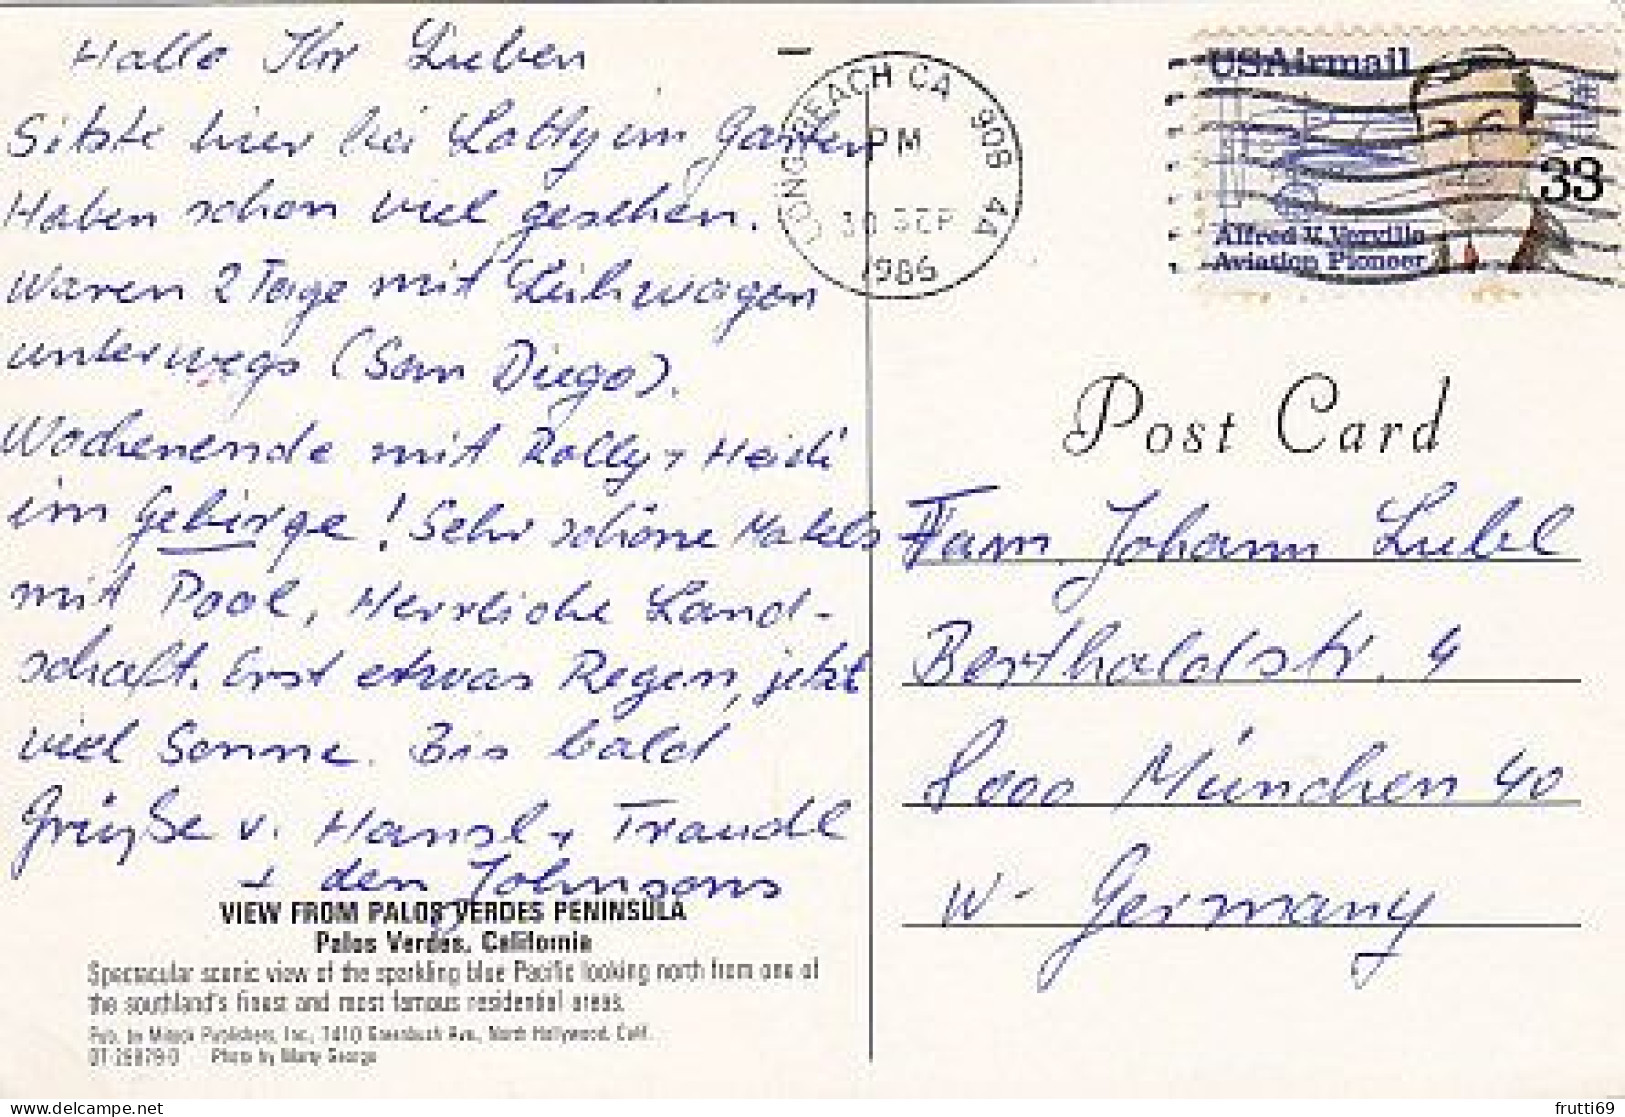 Hallo Ihr Lieben
Sitzte hier bei Lotty im Garten
Haben schon viel gesehen.
Waren 2 Tage mit Leihwagen
unterwegs (San Diego).
Wochenende mit Rolly + Heidi
im Gebirge! Sehr schöne Hotels
mit Pool, Herrliche Land-
schaft. Erst etwas Regen, jetzt
viel Sonne. Bis bald
Grüße v. Hansl + Traudl
+ den Johnsons
VIEW FROM PALOS VERDES PENINSULA
Palos Verdes, California
Spectacular scenic view of the sparkling blue Pacific looking north from one of
the southland's finest and most famous residential areas.
Pub. by Mitock Publishers, Inc., 7410 Greenbush Ave., North Hollywood, Calif.
Photo by George
LONG BEACH CA 908 44
PM
30 SEP
1986
USAirmail
33
Alfred V. Verville
Aviation Pioneer
Post Card
Fam. Johann Liebl
Bertholdstr. 4
8000 München 40
W- Germany
frutti69